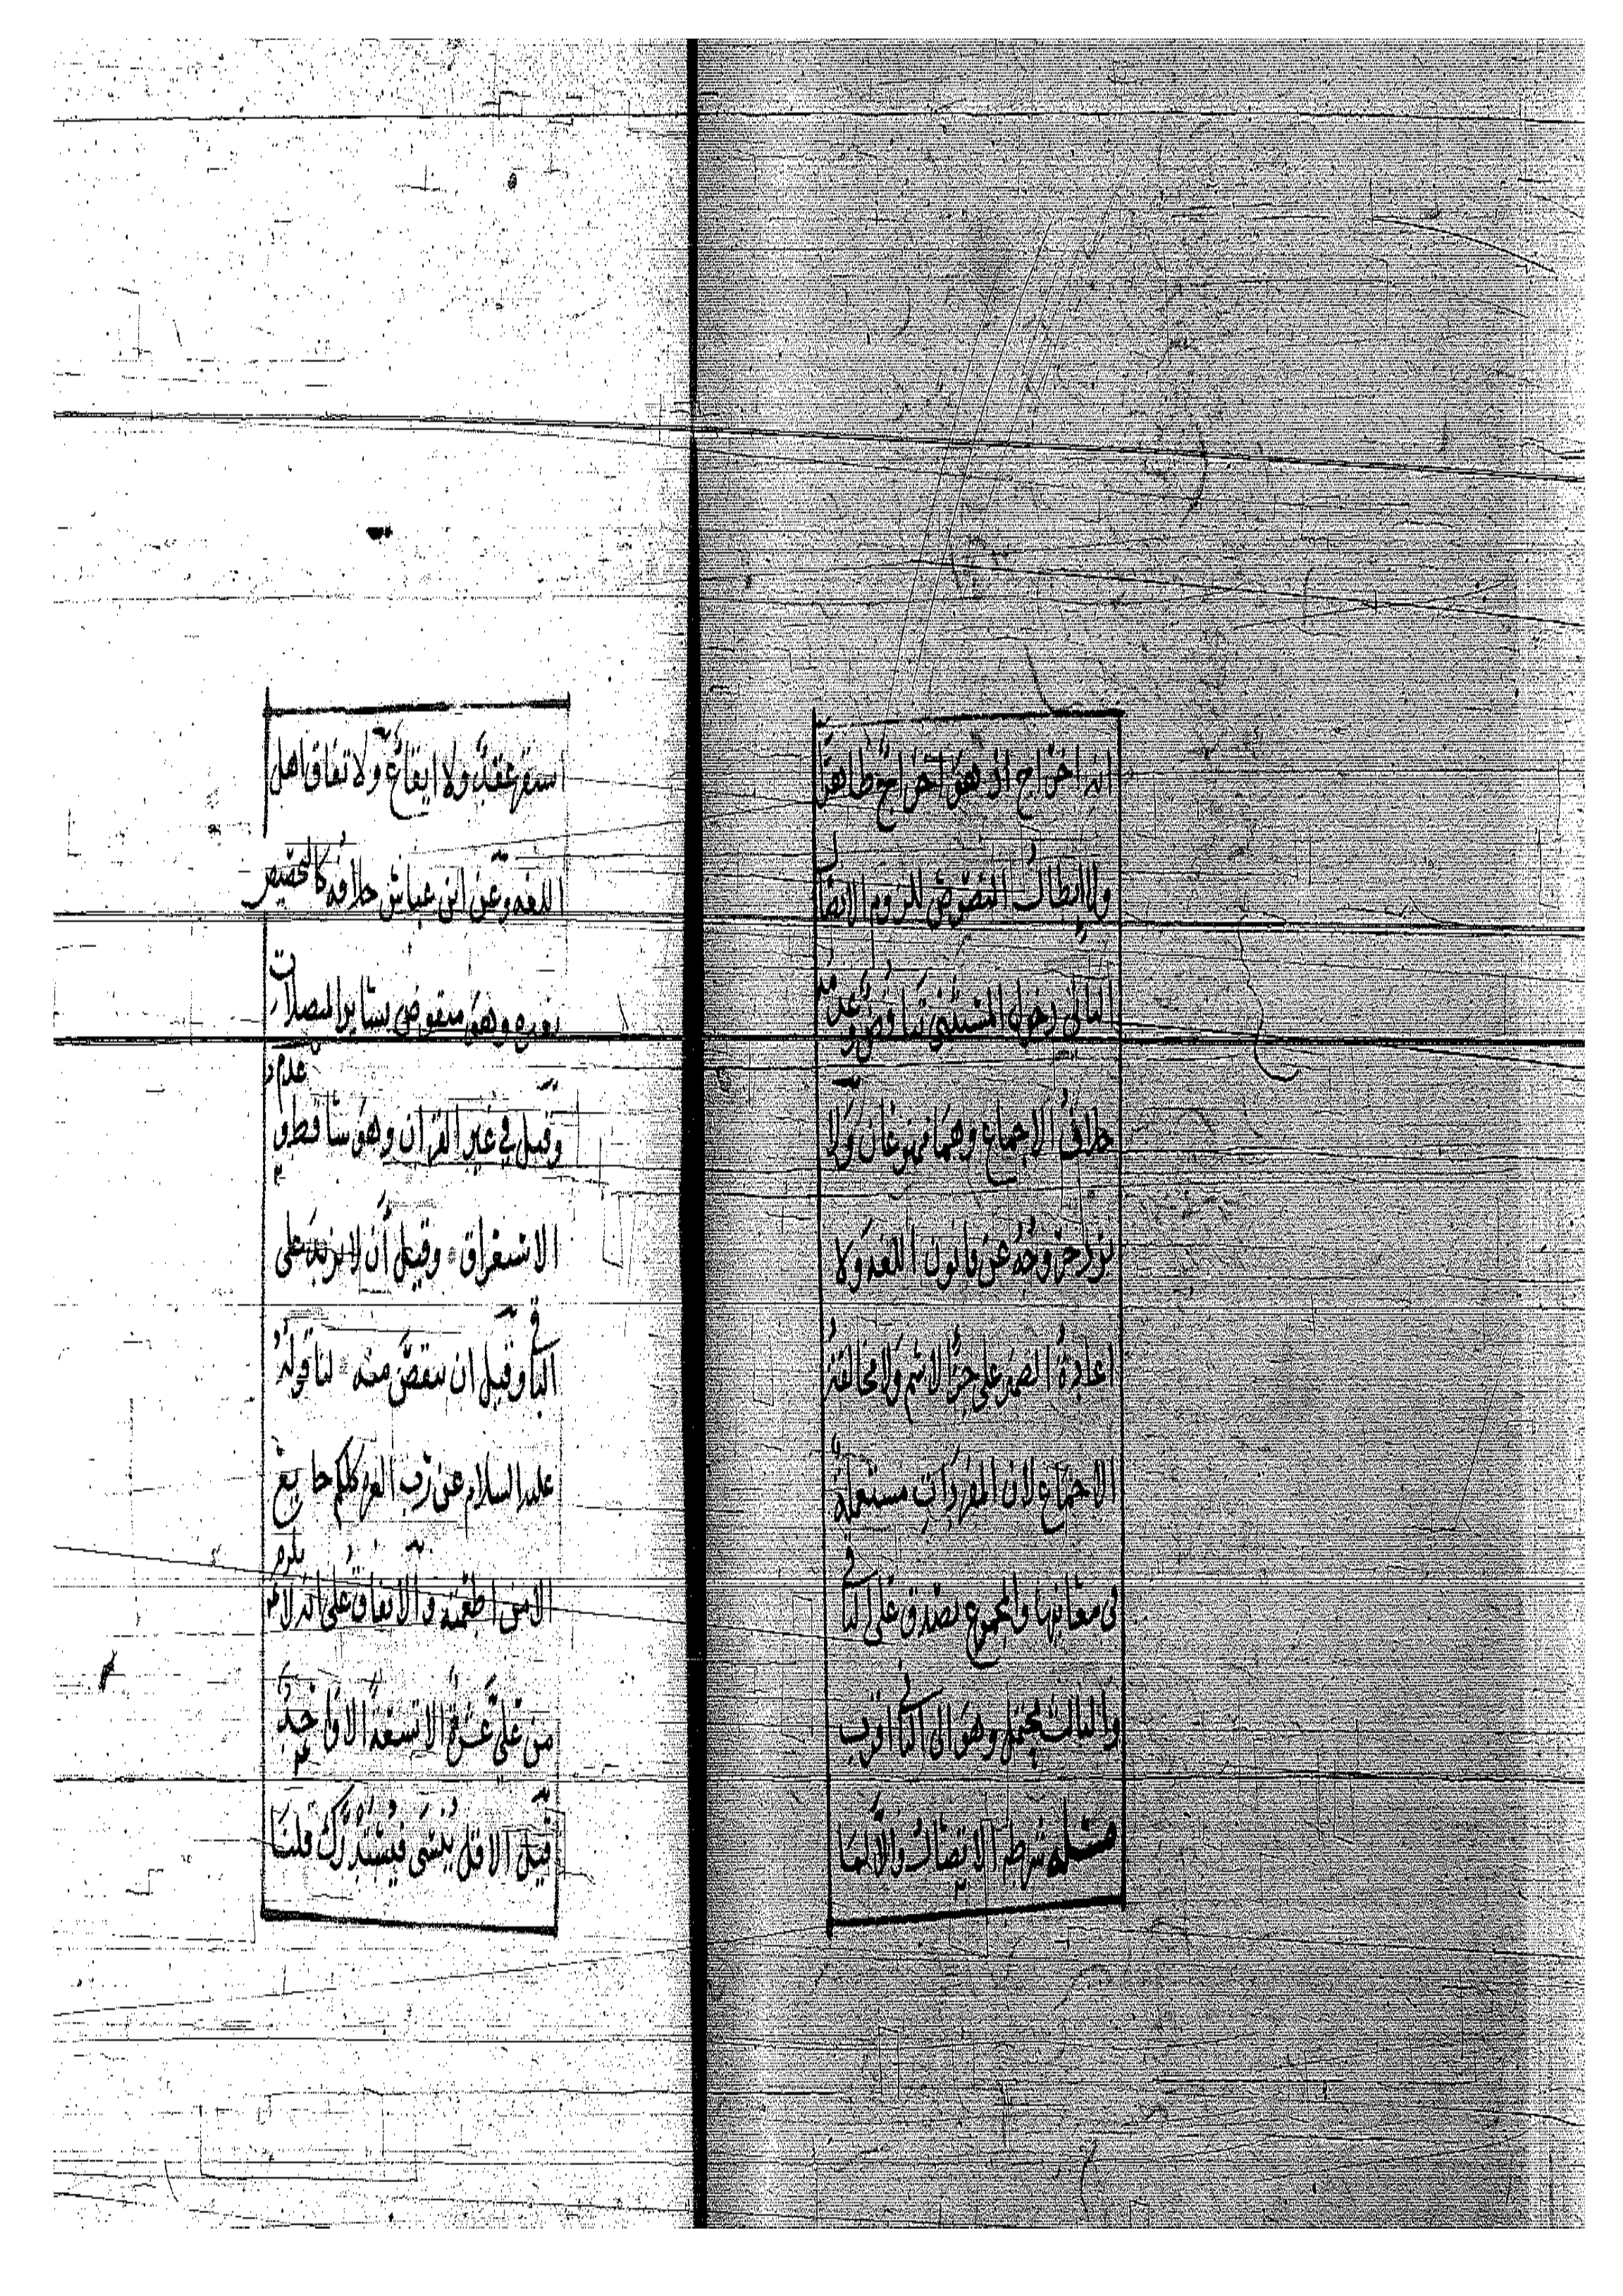 انه اخراج اذ هو اخراج ظاهرا
ولا ابطال النصوص للزوم الاتصال
الثاني دخول المستثنى تناقض وعدمه
خلاف الاجماع وهما ممنوعان ولا
يرد خروجه عن قانون اللغه ولا
اعادة الضمير على جزء الاسم ولا مخالفته
الاجماع لان المفردات مستعملة
في معانيها والمجموع يصدق على الباقي
والثالث محتمل وهو الى الثاني اقرب
مسئله شرطه الاتصال والا لما
استقر عقد ولا ايقاع ولاتفاق اهل
اللغه وعن ابن عباس خلافه كالتخصيص
بغيره وهو منقوض بساير المتصلات
وقيل في غير القران وهو ساقط وعدم
الاستغراق وقيل ان لا يزيد على
الباقي وقيل ان ينقص منه لنا قوله
عليه السلام عن رب العزه كلكم جايع
الا من اطعمته والاتفاق على انه لا يلزم
من علي عشرة الا تسعة الا واحد
قيل الاقل ينسى فيستدرك قلنا